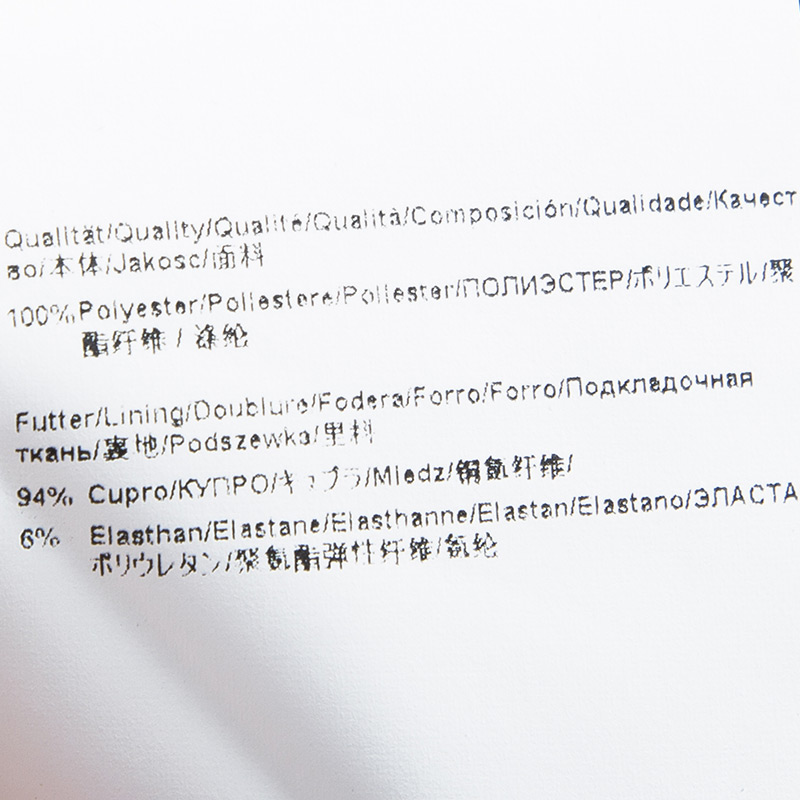 Qualität/Quality/Qualité/Qualità/Composición/Qualidade/Качест
во/本体/Jakosc/面料
100% Polyester/Poliestere/Poliester/ПОЛИЭСТЕР/ポリエステル/聚
酯纤维 / 涤纶
Futter/Lining/Doublure/Fodera/Forro/Forro/Подкладочная
ткань/裏地/Podszewka/里料
94% Cupro/КУПРО/キュプラ/Miedz/铜氨纤维/
6% Elasthan/Elastane/Elasthanne/Elastan/Elastano/ЭЛАСТА
ポリウレタン/聚氨酯弹性纤维/氨纶